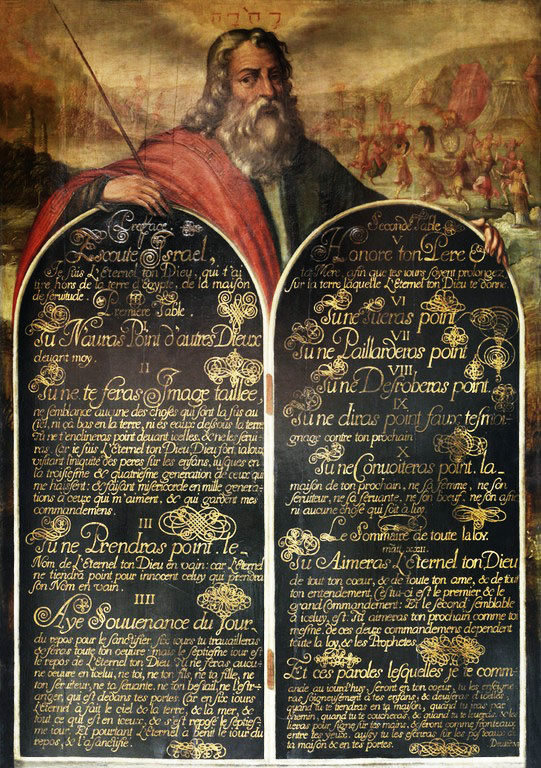 Preface
Escoute Israel,
Je suis L'Eternel ton Dieu, qui t'ai
tire hors de la terre d'égypte, de la maison
de servitude.
Premiere Table.
I
Tu N'auras Point d'autres Dieux
devant moy.
II
Tu ne te feras Image taillee,
ne semblance aucune des choses qui sont la sus au
Ciel, ni ça bas en la terre, ni es eaux dessous la terre
Tu ne t'enclineras point devant icelles, & ne les servi-
ras. Car je suis L'Eternel ton Dieu, Dieu fort, jaloux
visitant l'iniquité des peres sur les enfans, jusques en
la troisiesme & quatriesme generation de ceux qui
me haissent: & faisant misericorde en mille genera-
tions a ceux qui m'aiment, & qui gardent mes
commandemens.
III
Tu ne Prendras point le
Nom de L'Eternel ton Dieu en vain: car L'Eternel
ne tiendra point pour innocent celuy qui prendra
son Nom en vain.
IIII
Aye Souvenance du Jour
du repos pour le sanctifier six jours tu travailleras
& feras toute ton oeuvre: mais le septiesme jour est
le repos de L'Eternel ton Dieu. Tu ne feras aucu-
ne oeuvre en icelui, ne toi, ne ton fils, ne ta fille, ne
ton serviteur, ne ta servante, ne ton bestail, ne l'estr-
anger qui est dedans tes portes: Car en six jours
L'Eternel à fait le ciel & la terre, & la mer, &
tout ce qui est en iceux, & s'est reposé le septies-
me jour. Et pourtant L'Eternel a benit le jour du
repos, & l'a sanctifié.
Seconde Table
V
Honore ton Pere &
ta Mere, afin que tes jours soyent prolongez
sur la terre laquelle L'Eternel ton Dieu te donne.
VI
Tu ne tueras point.
VII
Tu ne Paillarderas point
VIII
Tu ne Desroberas point.
IX
Tu ne diras point faux tesmoi-
gnage contre ton prochain
X
Tu ne Convoiteras point la
maison de ton prochain, ne sa femme, ne son
serviteur, ne sa servante, ne son boeuf, ne son asne
ni aucune chose qui soit à luy.
Le Sommaire de toute la loy.
mat. XXII.
Tu Aimeras L'Eternel ton Dieu
de tout ton coeur, & de toute ton ame, & de tout
ton entendement. Cestui-ci est le premier & le
grand Commandement: Et le second semblable
à icelui, est: Tu aimeras ton prochain comme toi
mesme. de ces deux commandemens dependent
toute la loy, & les Prophetes.
Et ces paroles lesquelles je te comm-
ande aujourd'huy seront en ton coeur, tu les enseigne-
ras soigneusement à tes enfans, & deviseras d'icelles
quand tu te tiendras en ta maison, quand tu iras par
chemin, quand tu te coucheras, & quand tu te leveras. & les
lieras pour signe sur tes mains, & seront comme fronteaux
entre tes yeux: aussy tu les escriras sur les posteaux de
ta maison & en tes portes.